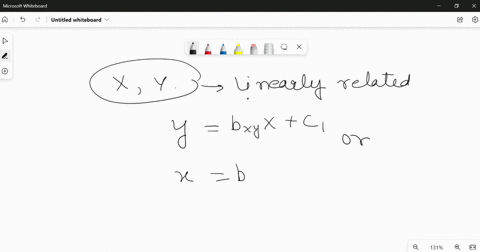 Microsoft Whiteboard
Untitled whiteboard
X, Y. → Linearly related
y = bxyX + C1 or
x = b
131%